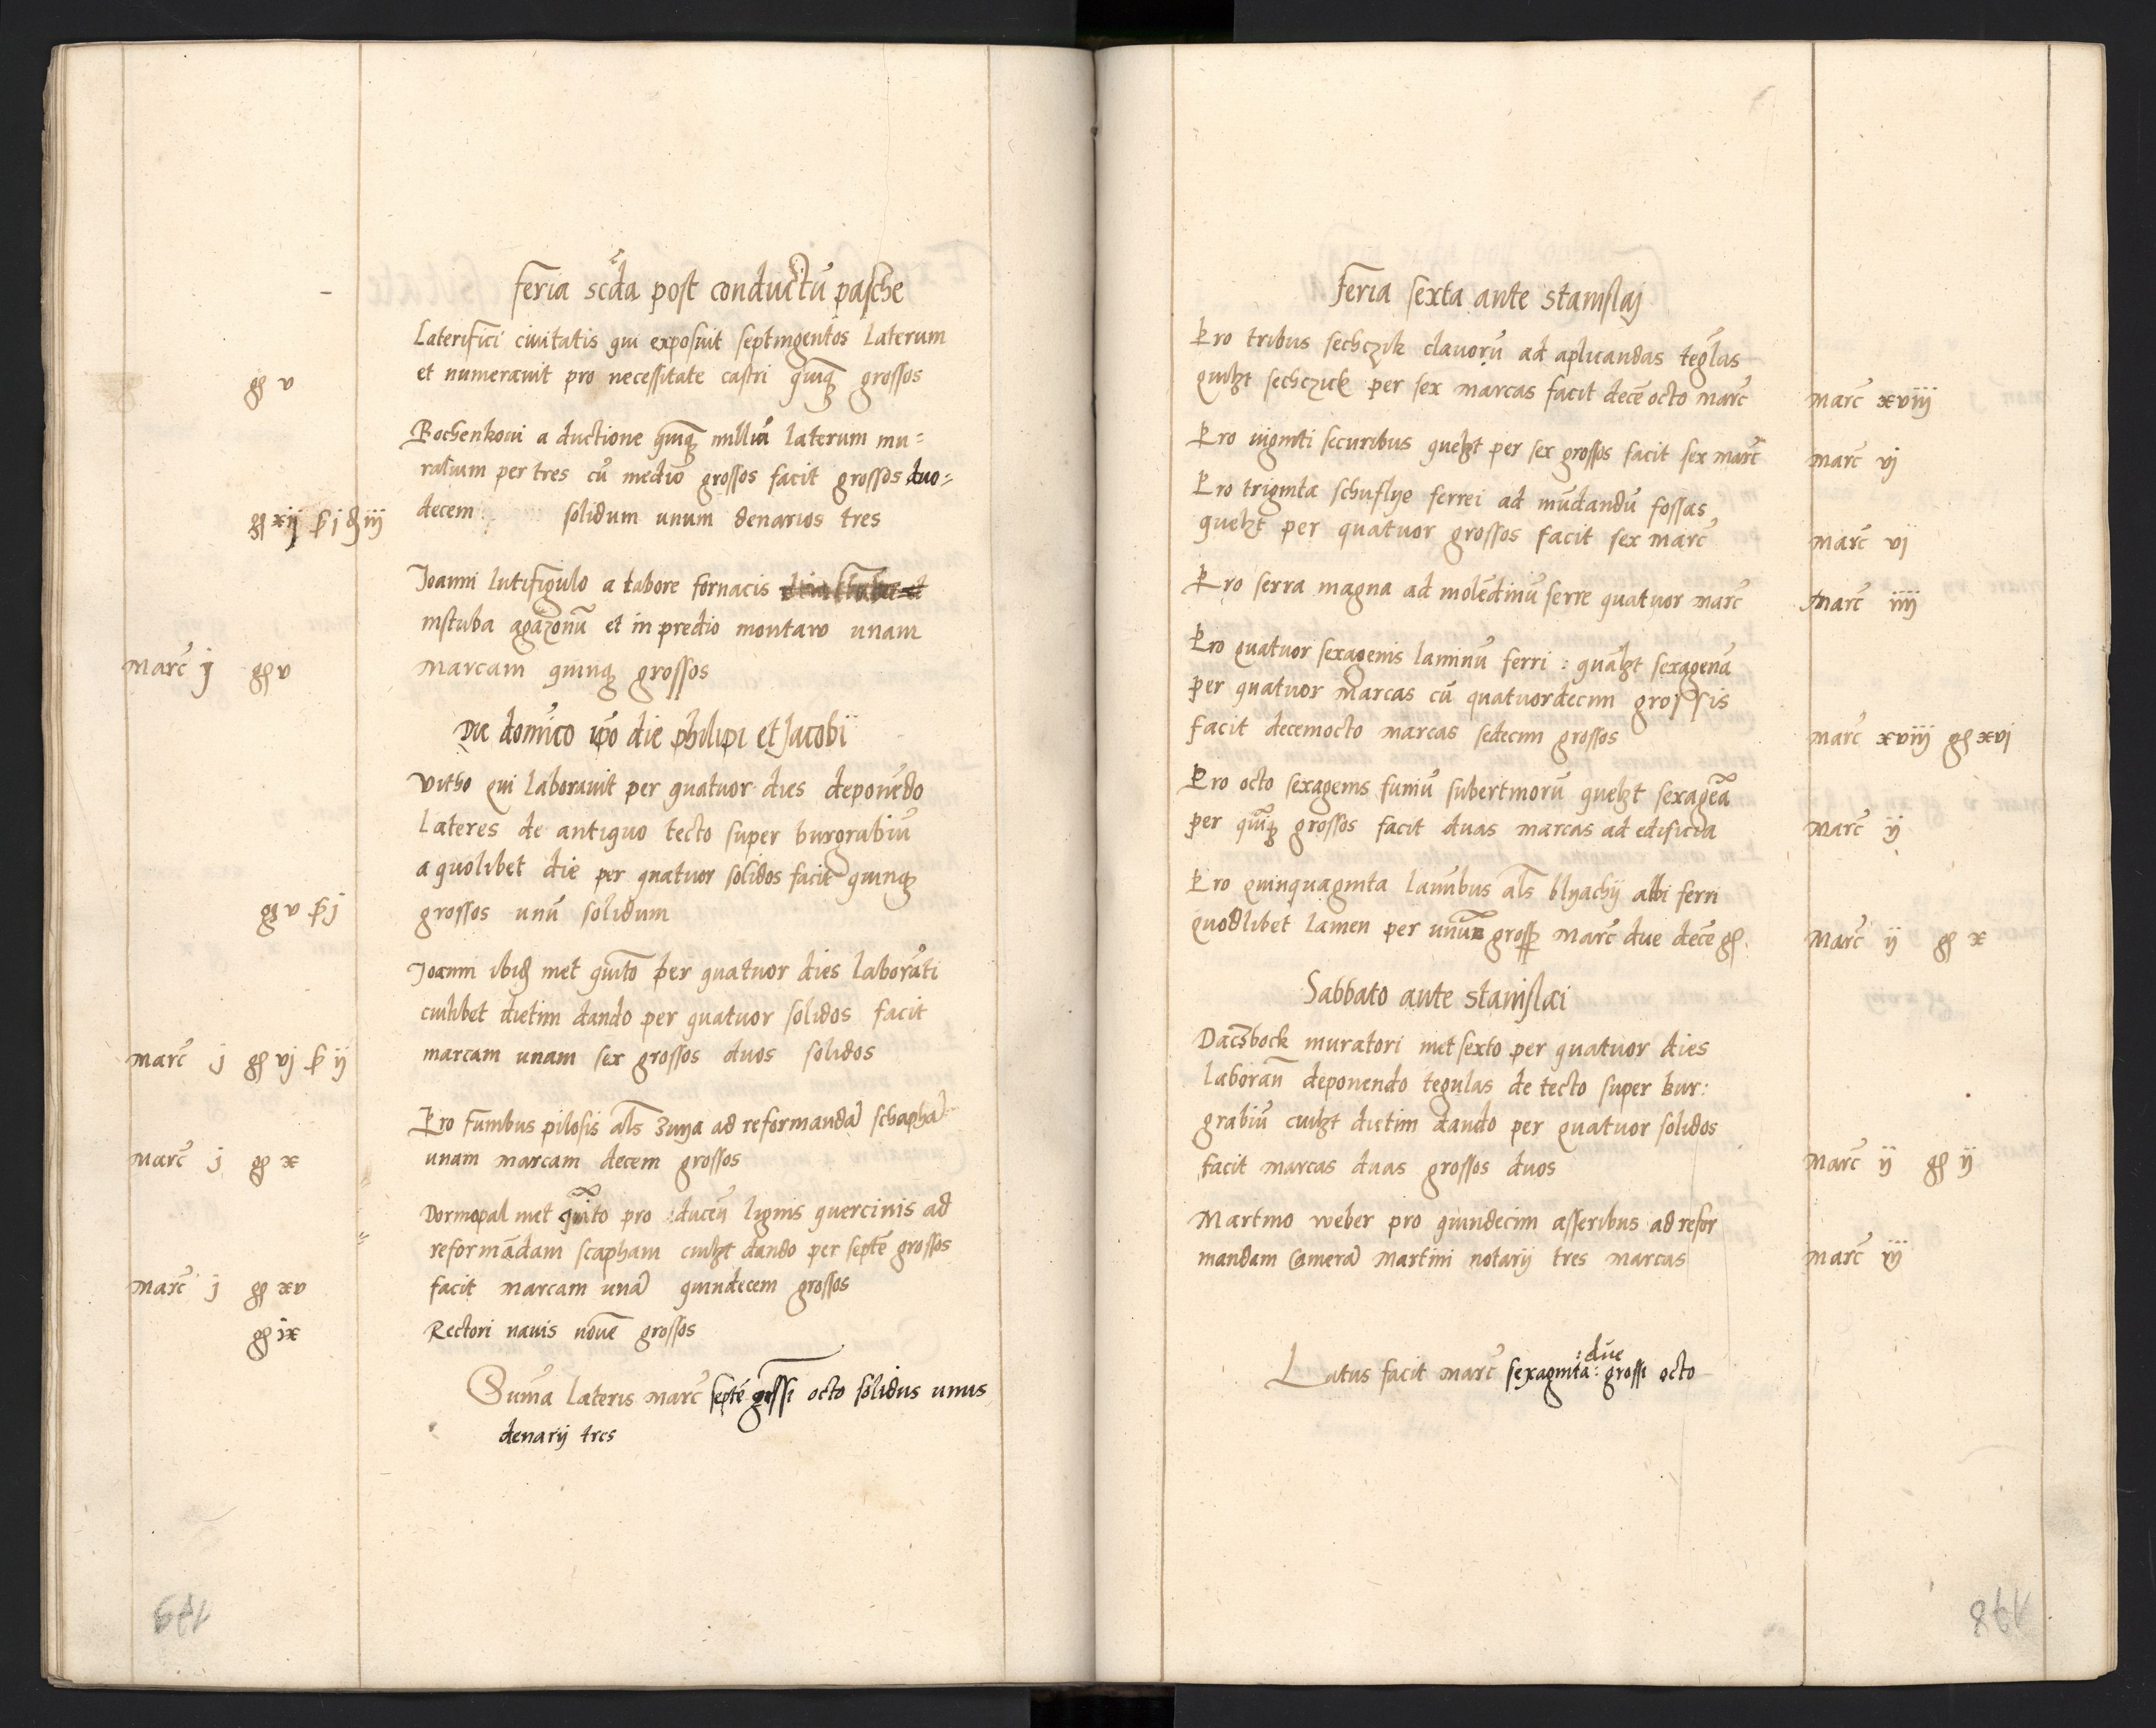 feria scda post conductū pasche
Laterifici civitatis qui exposuit septingentos laterum
gͬ v
et numeravit pro necessitate castri quīqȝ grossos
Bochenkowi a ductione quīqȝ milliū laterum mu=
ratium per tres cū medio grossos facit grossos duo=
gͬ xij ß j đ iij
decem solidum unum denarios tres
Joanni lutifigulo a labore fornacis
instuba agazonū et in predio montaro unam
Marc̄ j gͬ v
marcam quinqȝ grossos
Die domīco ipō die philipi et Jacobi
Vitho qui laboravit per quatuor dies deponēdo
lateres de antiquo tecto super burgrabiū
a quolibet die per quatuor solidos facit quinqȝ
gͬ v ß j
grossos unū solidum
Joanni ibiđ met quīto per quatuor dies laborāti
cuilibet dietim dando per quatuor solidos facit
Marc̄ j gͬ vj ß ij
marcam unam sex grossos duos solidos
Pro funibus pilosis als zima ad reformandā schaphā
Marc̄ j gͬ x
unam marcam decem grossos
Dormopal met quīto pro ducēn lignis quercinis ad
reformādam scapham cuilȝt dando per septē grossos
Marc̄ j gͬ xv
facit marcam unā quindecem grossos
gͬ ix
Rectori navis novē grossos
Suma lateris marc̄ septē grossi octo solidus unus
denarij tres
179
Feria sexta ante stanislaj
Pro tribus sechczik clavorū ad aplicandas teglas
quilȝt sechczick per sex marcas facit decē octo marc̄
Marc̄ xviij
Pro viginti securibus quelȝt per sex grossos facit sex marc̄
Marc̄ vj
Pro triginta schuflye ferrei ad mūdandū fossas
quelȝt per quatuor grossos facit sex marc̄
Marc̄ vj
Pro serra magna ad molēdinū serre quatuor marc̄
Marc̄ iiij
Pro quatuor sexagenis laminū ferri : quālȝt sexagenā
per quatuor marcas cū quatuordecim grossis
facit decemocto marcas sedecim grossos
Marc̄ xviij gͬ xvj
Pro octo sexagenis funiū subertinorū quelȝt sexagēa
per quīqȝ grossos facit duas marcas ad edificia
Marc̄ ij
Pro quinquaginta lamībus als blyachij albi ferri
quodlibet lamen per unum gross marc̄ due decē gͬ
Marc̄ ij gͬ x
Sabbato ante stanislai
Daczbock muratori met sexto per quatuor dies
laborañ deponendo tegulas de tecto super bur:
grabiū cuilȝt dietim dando per quatuor solidos
facit marcas duas grossos duos
Marc̄ ij gͬ ij
Martino weber pro quindecim asseribus ad refor
mandam camerā Martini notarij tres marcas
Marc̄ iij
:due
Latus facit marc̄ sexaginta: grossi octo
178